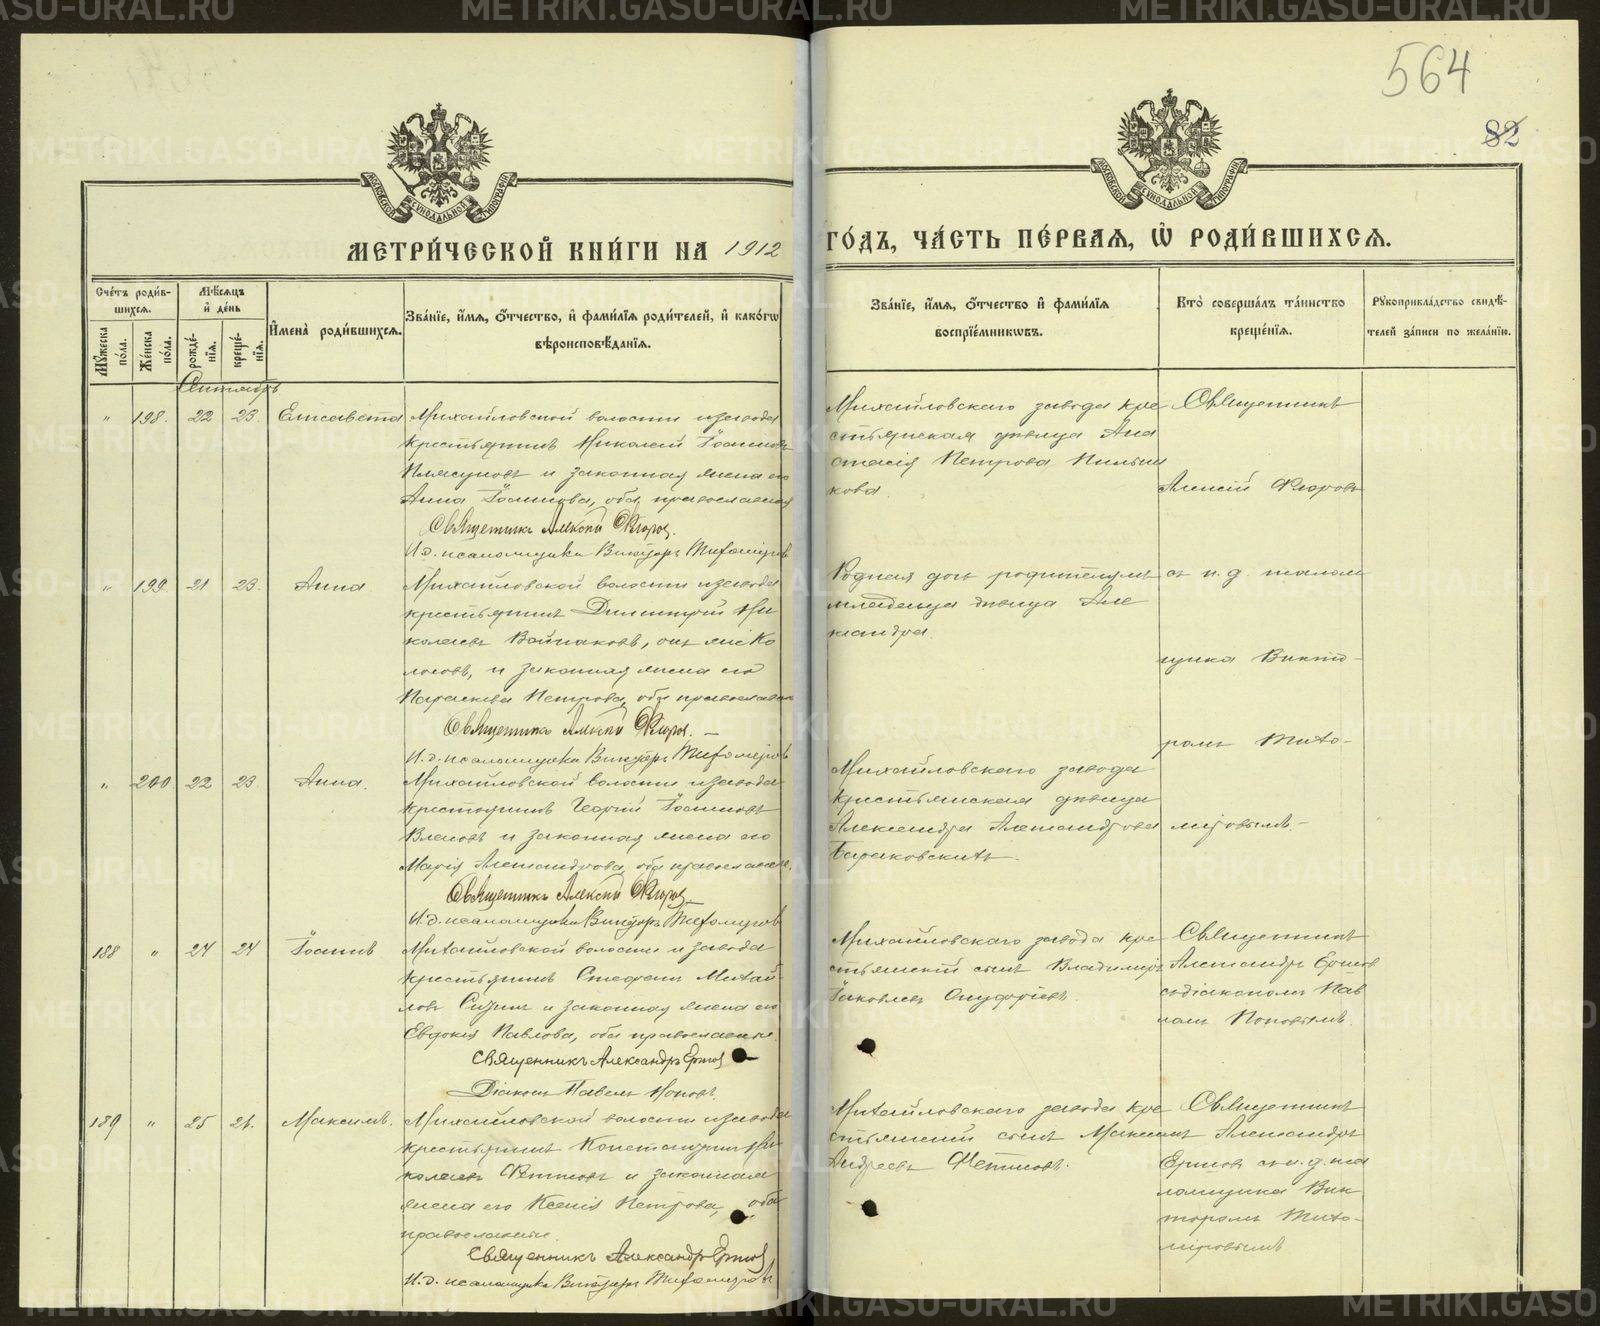 564
82
МОСКОВСКОЙ СѴНОДАЛЬНОЙ ТИПОГРАФІИ
МОСКОВСКОЙ СѴНОДАЛЬНОЙ ТИПОГРАФІИ
МЕТРИ́ЧЕСКОЙ КНИ́ГИ НА 1912 ГО́ДЪ, ЧА́СТЬ ПЕ́РВАЯ, Ѡ҆ РОДИ́ВШИХСЯ.
Сче́тъ роди́в-
шихся.
Мꙋ́жеска по́ла.
Же́нска по́ла.
Мѣ́сяцъ
и҆ де́нь
рожде́-
нїя.
креще́-
нїя.
И҆мена̀ роди́вшихся.
Зва́нїе, и҆́мя, ѻ҆́тчество, и҆ фами́лїя роди́телей, и҆ како́гѡ
вѣроисповѣ́данїя.
Зва́нїе, и҆́мя, ѻ҆́тчество и҆ фами́лїя
воспрїе́мникѡвъ.
Кто̀ соверша́лъ та́инство
креще́нїя.
Рꙋкоприкла́дство свидѣ́-
телей за́писи по жела́нїю.
Сентябрь
" 198. 22 23. Елисавета
Михайловской волости и завода
крестьянинъ Николай Іоанновъ
Плясуновъ и законная жена его
Анна Іоаннова, оба православные
Священникъ Алексій Флоровъ.
И.д. псаломщика Викторъ Тихомировъ
Михайловскаго завода кре
стьянская дѣвица Ана
стасія Петрова Пильни
кова.
Священникъ
Алексій Флоровъ
" 199. 21 23. Анна
Михайловской волости и завода
крестьянинъ Димитрій Ни
колаевъ
и законная жена его
Параскева Петрова, оба православные
Священникъ Алексій Флоровъ. —
И.д. псаломщика Викторъ Тихомировъ
Родная дочь родителямъ
младенца дѣвица Але
ксандра.
съ и.д. псалом
щика Викто-
ромъ Тихо-
міровымъ. —
" 200 22 23. Анна.
Михайловской волости и завода
крестьянинъ Георгій Іоанновъ
Власовъ и законная жена его
Марія Александрова, оба православные.
Священникъ Алексій Флоровъ
И.д. псаломщика Викторъ Тихомировъ
Михайловскаго завода
крестьянская дѣвица
Александра Александрова
188 " 24 24 Іоаннъ
Михайловской волости и завода
крестьянинъ Стефанъ Михай-
ловъ и законная жена его
Евдокія Павлова, оба православные
Священникъ Александръ Ершовъ
Діаконъ Павелъ Поповъ.
Михайловскаго завода кре
стьянскій сынъ Владимиръ
Іаковлевъ Онуфріевъ.
Священникъ
Александръ Ершовъ
съ діакономъ Пав
ломъ Поповымъ.
189 " 25 26. Максимъ.
Михайловской волости и завода
крестьянинъ Константинъ Ни
колаевъ и законная
жена его Ксенія Петрова, оба
православные.
Священникъ Александръ Ершовъ
И.д. псаломщика Викторъ Тихомировъ
Михайловскаго завода кре
стьянскій сынъ Максимъ
Андреевъ
Священникъ
Александръ
Ершовъ съ и.д. пса
ломщика Вик
торомъ Тихо-
міровымъ